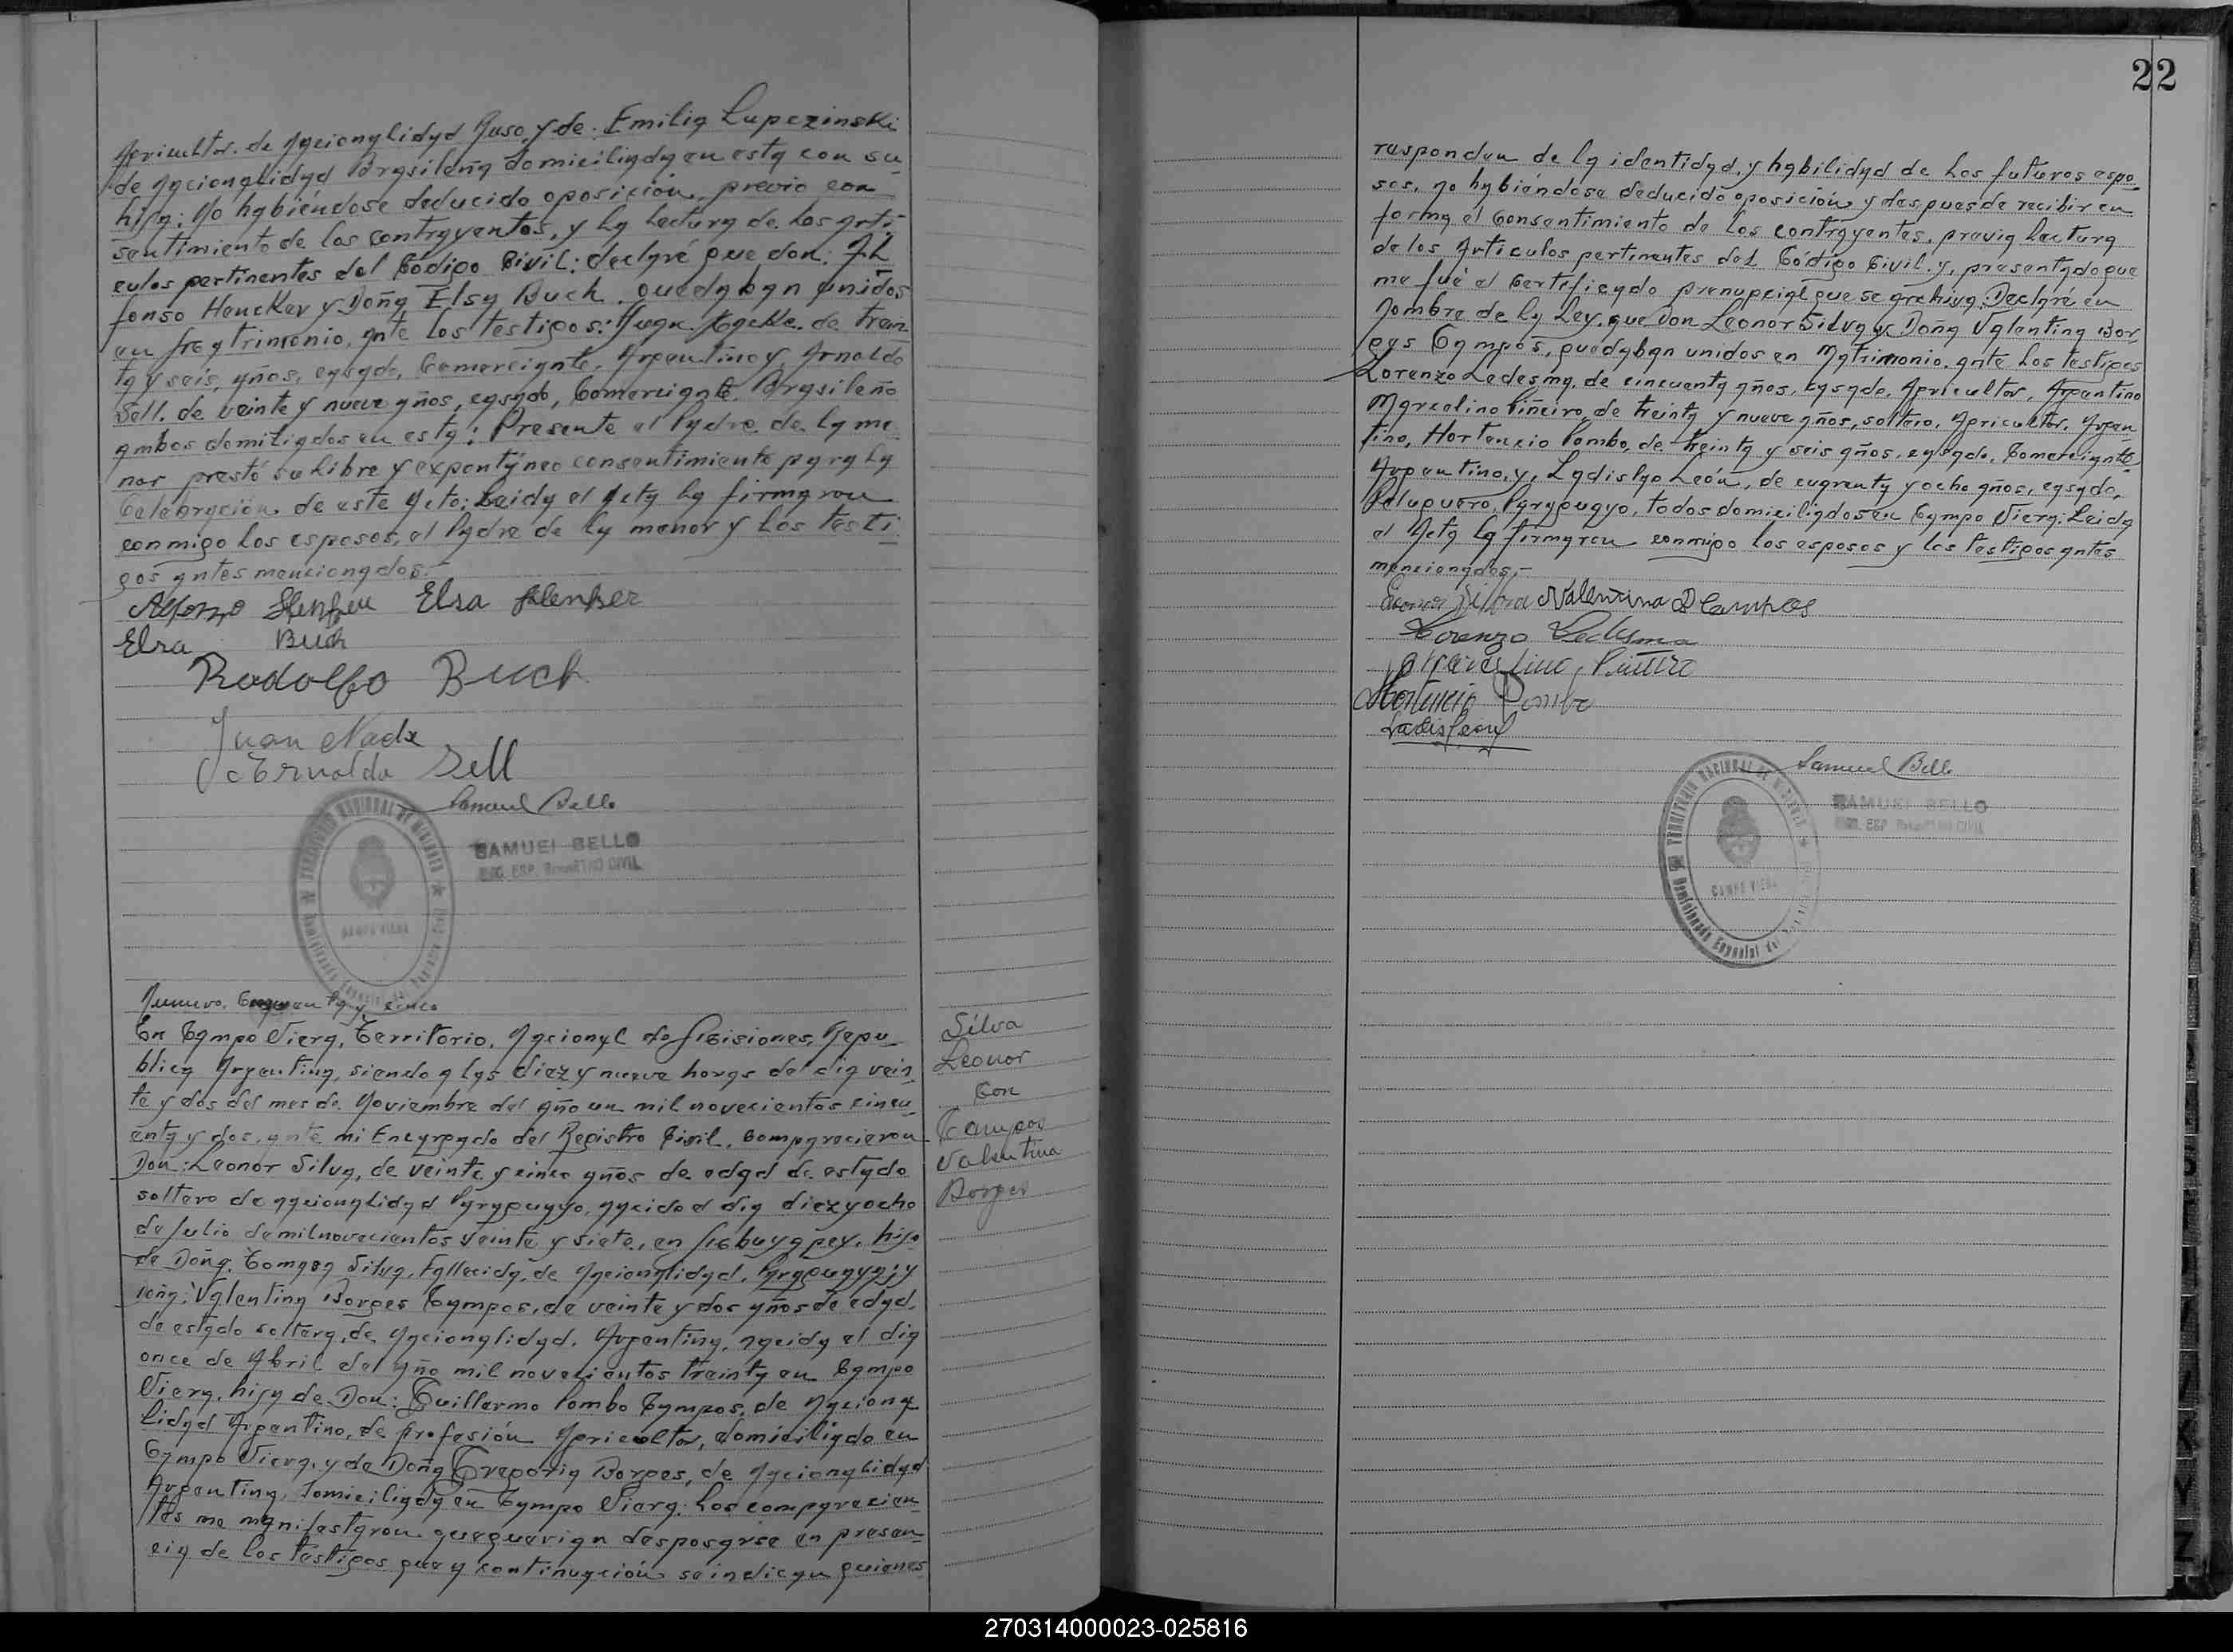 Agricultor. de nacionalidad Ruso, y de. Emilia Lupczinski
de nacionalidad Brasileña domiciliada en esta con su
hija; No habiéndose deducido oposición, previo con
sentimiento de los contrayentes, y la lectura de los artí-
culos pertinentes del Código Civil: declaré que don: Al
fonso Hencker y Doña Elsa Buch, quedaban unidos
en Matrimonio, ante los testigos: Juan de trein
ta y seis, años, casado, Comerciante, Argentino y Arnaldo
Sell. de veinte y nueve años, casado, Comerciante. Brasileño
ambos domiliados en esta; Presente el Padre de la me
nor prestó su libre y expontáneo consentimiento para la
Celebración de este Acto; Leida el Acta la firmaron
conmigo los esposos, el Padre de la menor y los testi
gos antes mencionados.-
Alfonso Elsa
Elsa Buch
Rodolfo Buch
Juan
Arnaldo Sell
Samuel Bello
TERRITORIO NACIONAL DE MISIONES
CAMPO VIERA
SAMUEL BELLO
ENC. ESP. REGISTRO CIVIL
Numero. y cinco
En Campo Viera, Territorio, Nacional de Misiones, Repu-
blica Argentina, siendo a las diez y nueve horas del dia vein-
te y dos del mes de Noviembre del año un mil novecientos cincu-
enta y dos, ante mi Encargado del Registro Civil, Comparecieron
Don: Leonor Silva, de veinte y cinco años de edad de estado
soltero de nacionalidad Paraguayo, nacido el dia diez y ocho
de Julio de mil novecientos veinte y siete, en Mbuyapey, hijo
de Doña. Tomasa Silva, Fallecida, de nacionalidad. Paraguaya; y
Doña: Valentina Borges Campos, de veinte y dos años de edad,
de estado soltera, de nacionalidad. Argentina, nacida el dia
once de Abril del año mil novecientos treinta en Campo
Viera, hija de Don: Guillermo Pombo Campos, de naciona
lidad Argentino, de profesión Agricultor, domiciliado en
Campo Viera, y de Doña Gregoria Borges, de nacionalidad
Argentina, domiciliada en Campo Viera. Los comparecien-
tes me manifestaron que querian desposarse en presen-
cia de los testigos que a continuación se indican quienes
Silva
Leonor
Con
Campos
Valentina
Borges
22
responden de la identidad, y habilidad de los futuros espo-
sos, no habiéndose deducido oposición y despues de recibir en
forma el Consentimiento de los contrayentes, previa lectura
de los Artículos pertinentes del Código Civil y, presentado que
me fué el Certificado prenupcial que se archiva: Declaré en
Nombre de la Ley. que Don Leonor Silva y Doña Valentina Bor-
ges Campos, quedaban unidos en Matrimonio. ante los testigos
Lorenzo Ledesma, de cincuenta años, casado, Agricultor, Argentino
Marcelino Piñeiro, de treinta y nueve años, soltero, Agricultor, Argen-
tino, Hortencio Pombo, de treinta y seis años, casado, Comerciante
Argentino, y, Ladislao León, de cuarenta y ocho años, casado,
Peluquero, Paraguayo, todos domiciliados en Campo Viera. Leida
el Acta la firmaron conmigo los esposos y los testigos antes
mencionados.-
Leonor Silva Valentina B Campos
Lorenzo Ledesma
Marcelino Piñeiro
Hortencio Pombo
Ladis León
Samuel Bello
TERRITORIO NACIONAL DE MISIONES
CAMPO VIERA
SAMUEL BELLO
ENC. ESP. REGISTRO CIVIL
270314000023-025816